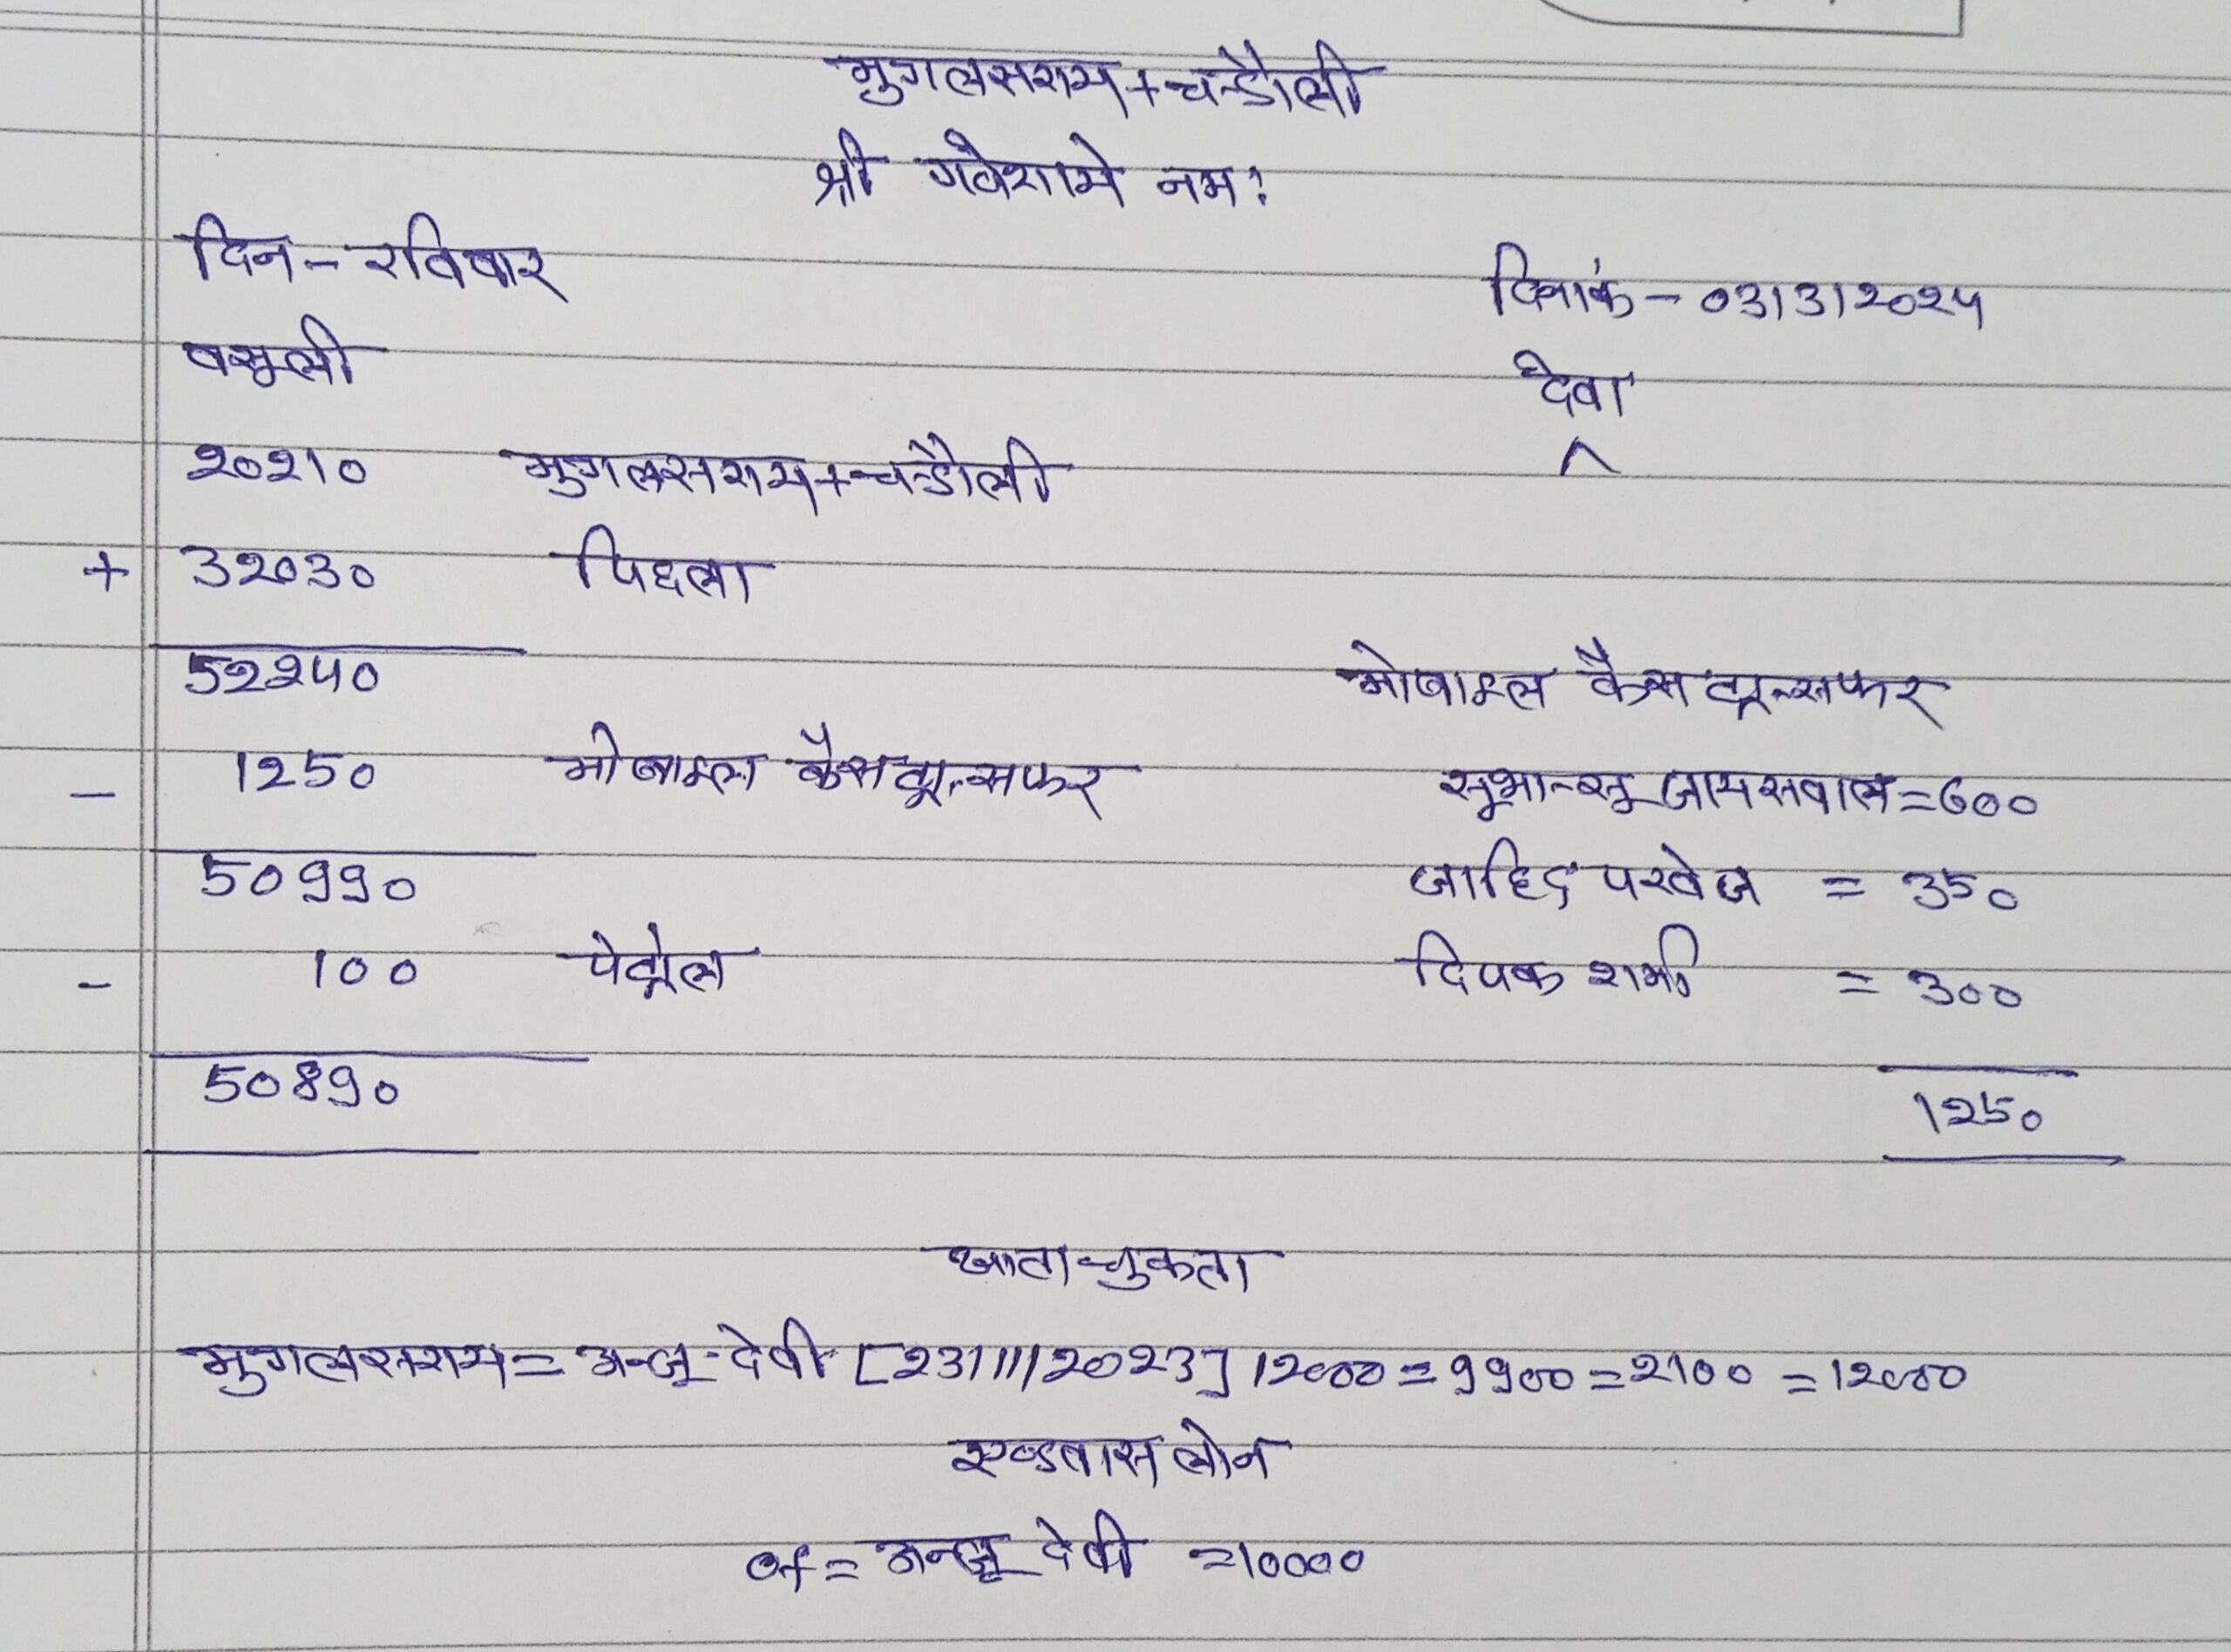 मुगलसराय + चन्डौली
श्री गणेशाये नमः
दिन - रविवार
दिनांक - 03/3/2024
वसूली
देवा
20210 मुगलसराय + चन्डौली
+ 32030 पिछला
52240
मोबाइल कैस ट्रान्सफर
- 1250 मोबाइल कैस ट्रान्सफर
सूभान्सू जायसवाल = 600
50990
जाहिद परवेज = 350
- 100 पेट्रोल
दिपक शर्मा = 300
50890
1250
खाता चुकता
मुगलसराय = अन्जू देवी [23/11/2023] 12000 = 9900 = 2100 = 12000
एडवास लोन
01 = अन्जू देवी = 10000